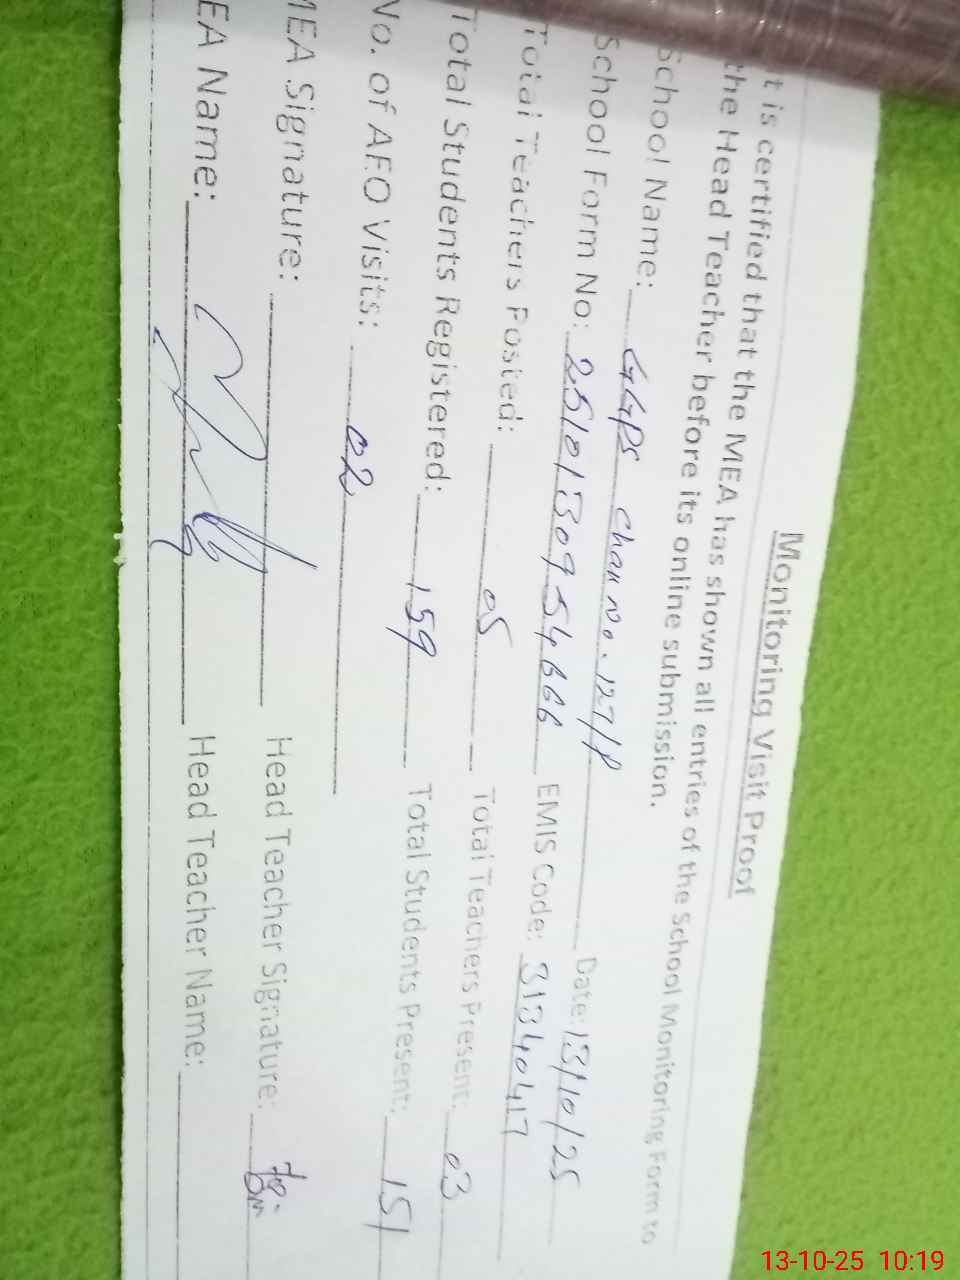 Monitoring Visit Proof
t is certified that the MEA has shown all entries of the School Monitoring Form to
the Head Teacher before its online submission.
School Name: GGPS Chak No. 127/P Date: 13/10/25
School Form No: EMIS Code: 31340417
Total Teachers Posted: 05 Total Teachers Present: 03
Total Students Registered: 159 Total Students Present: 151
No. of AEO Visits: 02
MEA Signature: Head Teacher Signature:
EA Name: Head Teacher Name:
13-10-25 10:19